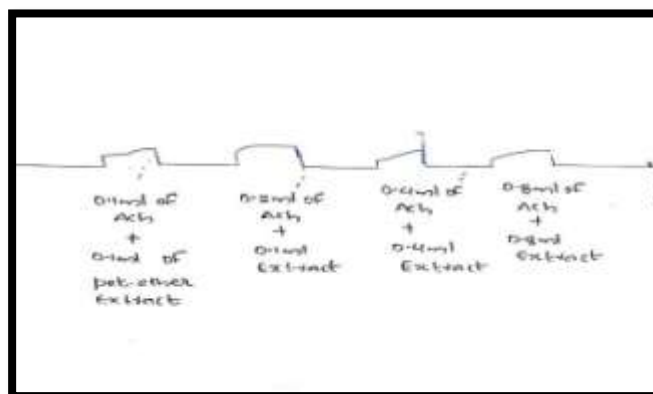 0.1ml of
Ach
+
0.1ml of
pet.ether
Extract
0.2ml of
Ach
+
0.1ml
Extract
0.4ml of
Ach
+
0.4ml
Extract
0.8ml of
Ach
+
0.8ml
Extract